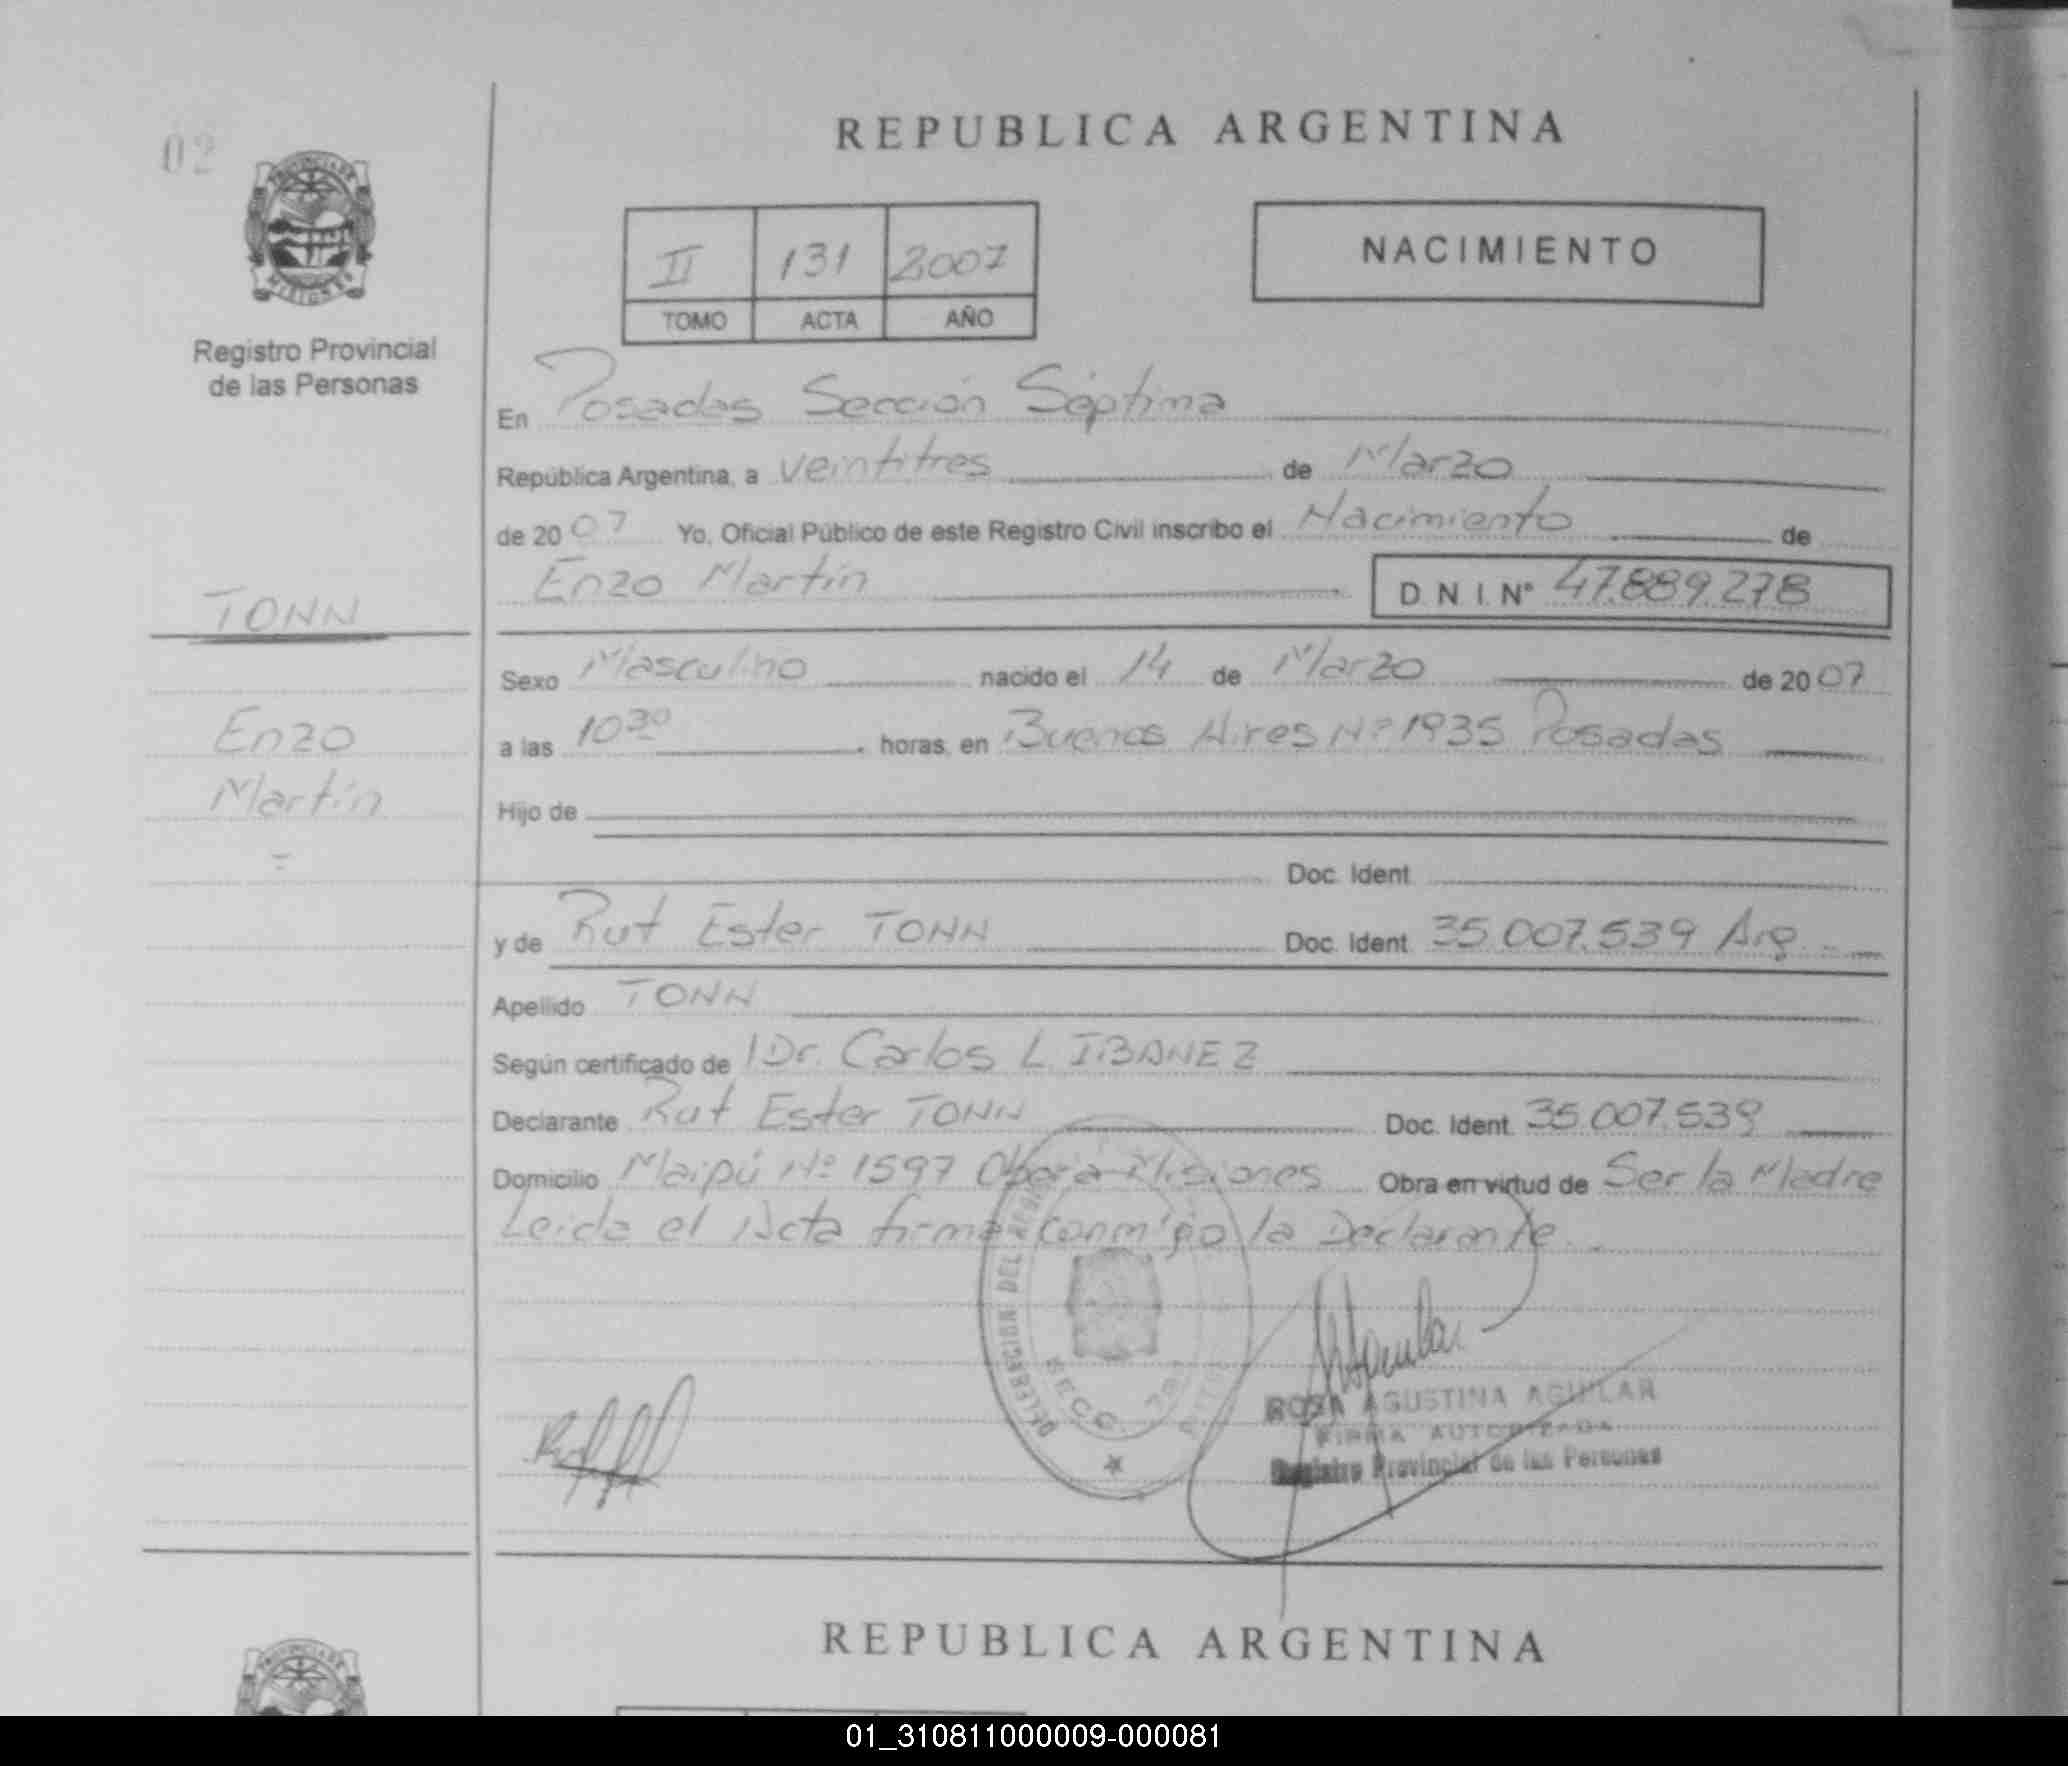 02
REPUBLICA ARGENTINA
PROVINCIA DE
MISIONES
Registro Provincial
de las Personas
II 131 2007
TOMO ACTA AÑO
NACIMIENTO
En Posadas Sección Séptima
República Argentina, a veintitres de Marzo
de 2007 Yo, Oficial Público de este Registro Civil inscribo el Nacimiento de
Enzo Martín D.N.I. N° 47.889.278
TONN
Enzo
Martín
Sexo Masculino nacido el 14 de Marzo de 2007
a las 10³⁰ horas, en Buenos Aires Nº 1935 Posadas
Hijo de
Doc. Ident.
y de Rut Ester TONN Doc. Ident. 35.007.539 Arg.
Apellido TONN
Según certificado de Dr. Carlos L. IBANEZ
Declarante Rut Ester TONN Doc. Ident. 35.007.539
Domicilio Maipú Nº 1597 Oberá Misiones Obra en virtud de Ser la Madre
Leida el Acta firma conmigo la Declarante.
DELEGACION DEL
SECC. 7a
ROSA AGUSTINA AGUILAR
FIRMA AUTORIZADA
Registro Provincial de las Personas
REPUBLICA ARGENTINA
PROVINCIA DE
01_310811000009-000081